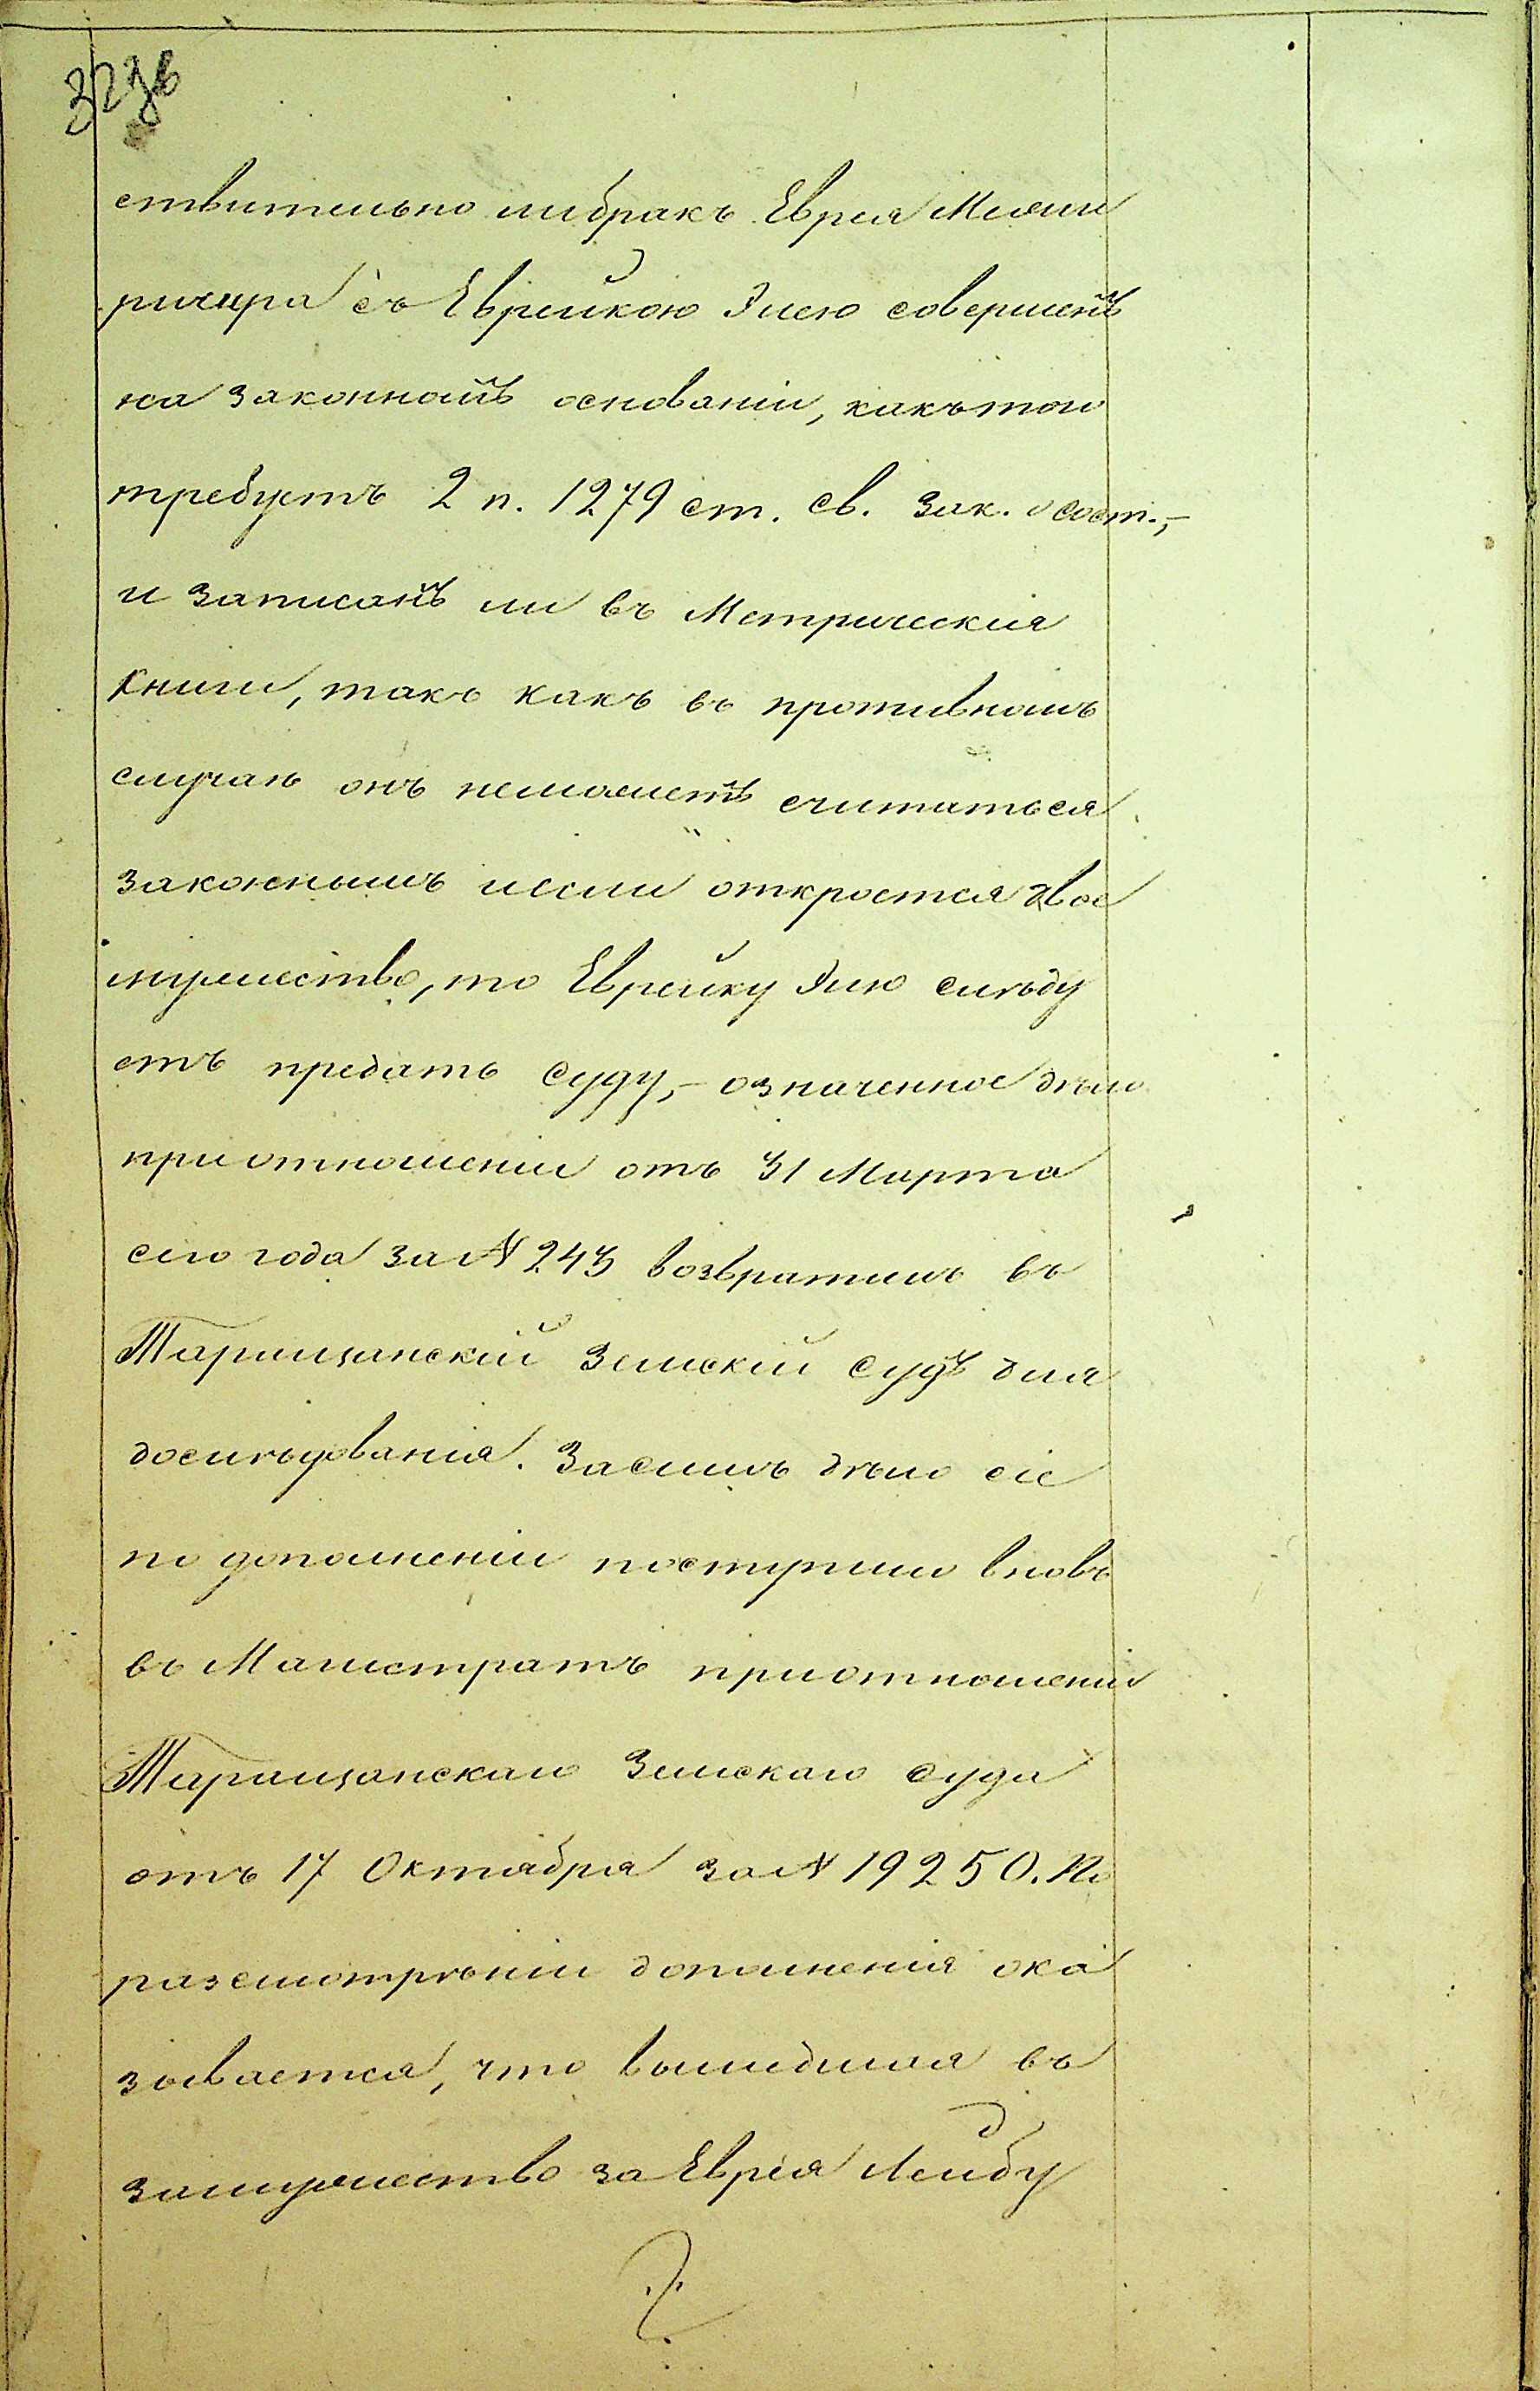 323в
ствительно ли бракъ Еврея Межи
ричера съ Еврейкою Элею совершенъ
на законномъ основаніи, какътого
требуетъ 2 п. 1279 ст. св. зак. о сост.,-
и записанъ ли въ Метрическія
Книги, такъ какъ въ противномъ
случаѣ онъ неможетъ считаться
законнымъ иесли откроется двое
мужество, то Еврейку Элю слѣду
етъ предать суду,- означенное дѣло
приотношеніи отъ 31 Марта
сего года за N 243 возвратилъ въ
Таращанскій Земскій судъ для
дослѣдованія. Засимъ дѣло сіе
по дополненіи поступило вновь
въ Магистратъ приотношеніи
Таращанскаго Земскаго суда
отъ 17 Октября за N 19250. По
разсмотрѣніи дополненія ока
зывается, что вышедшая въ
замужество за Еврея Лейбу